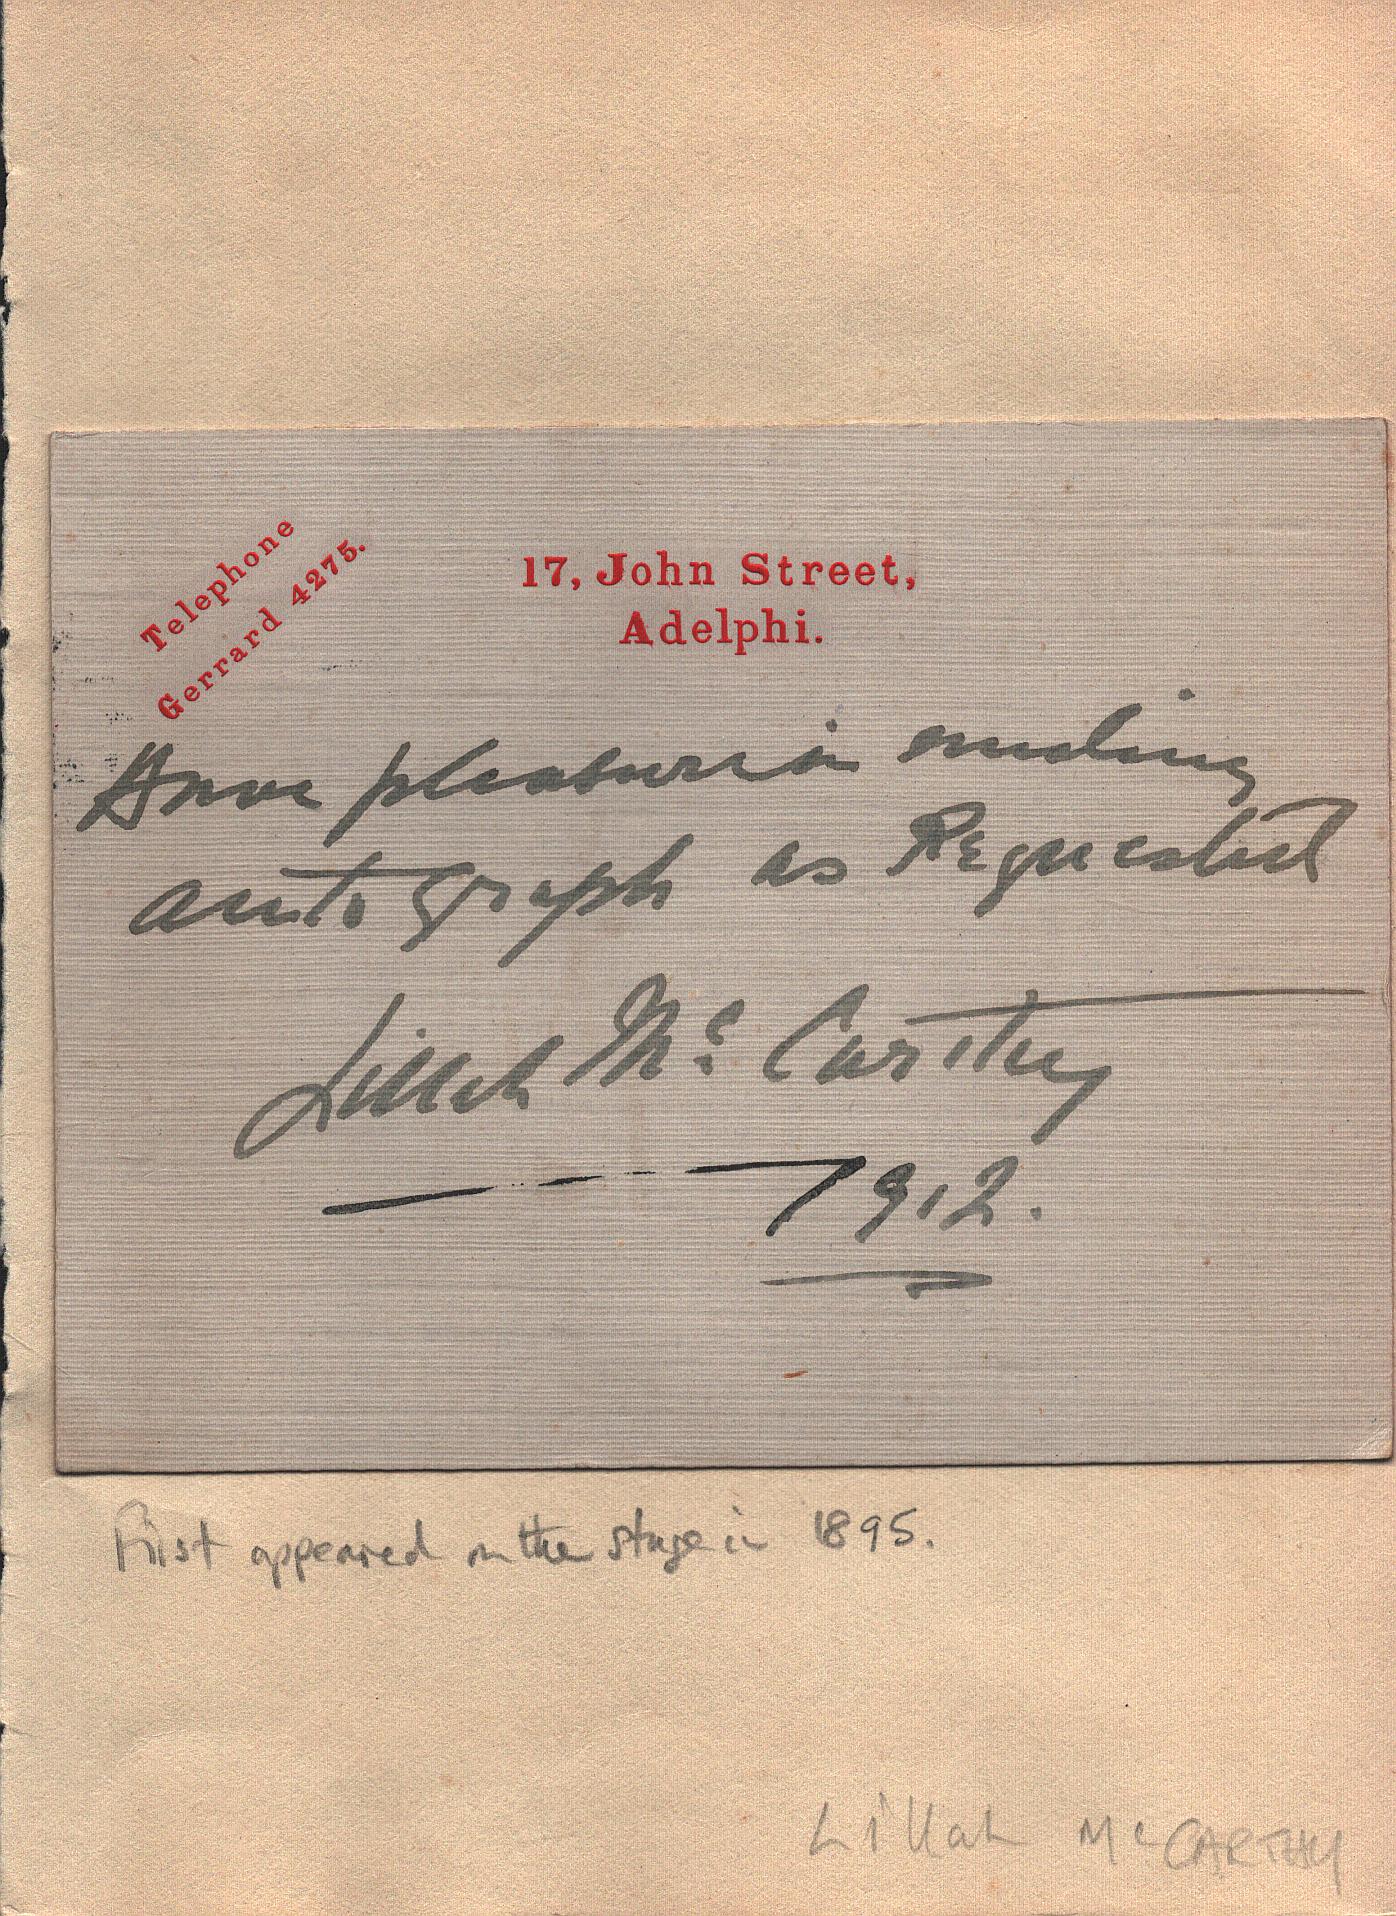 Telephone
Gerrard 4275.
17, John Street,
Adelphi.
Have pleasure in sending
autograph as Requested
Lillah Mc Carthy
1912.
First appeared on the stage in 1895.
Lillah McCARTHY